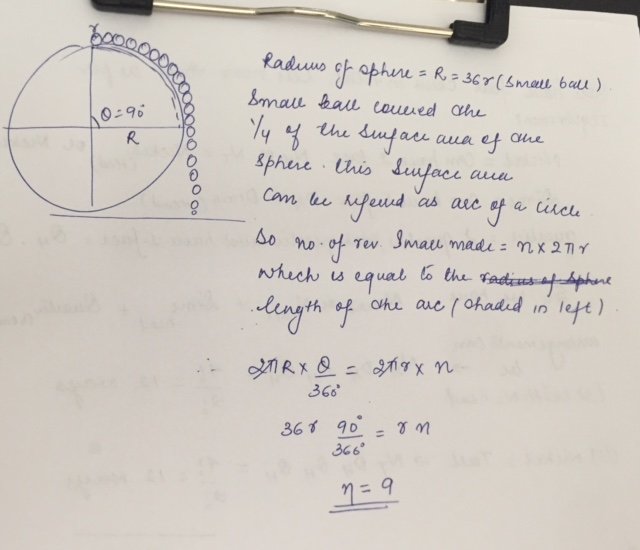 r
θ=90°
R
Radius of sphere = R = 36r (small ball)
Small ball covered the
1/4 of the surface area of the
sphere. this surface area
can be
as arc of a circle
So no. of rev. Small made = n × 2πr
which is equal to the radius of sphere
length of the arc (shaded in left)
∴ 2πR × θ/360° = 2πr × n
36r 90°/360° = r n
n = 9